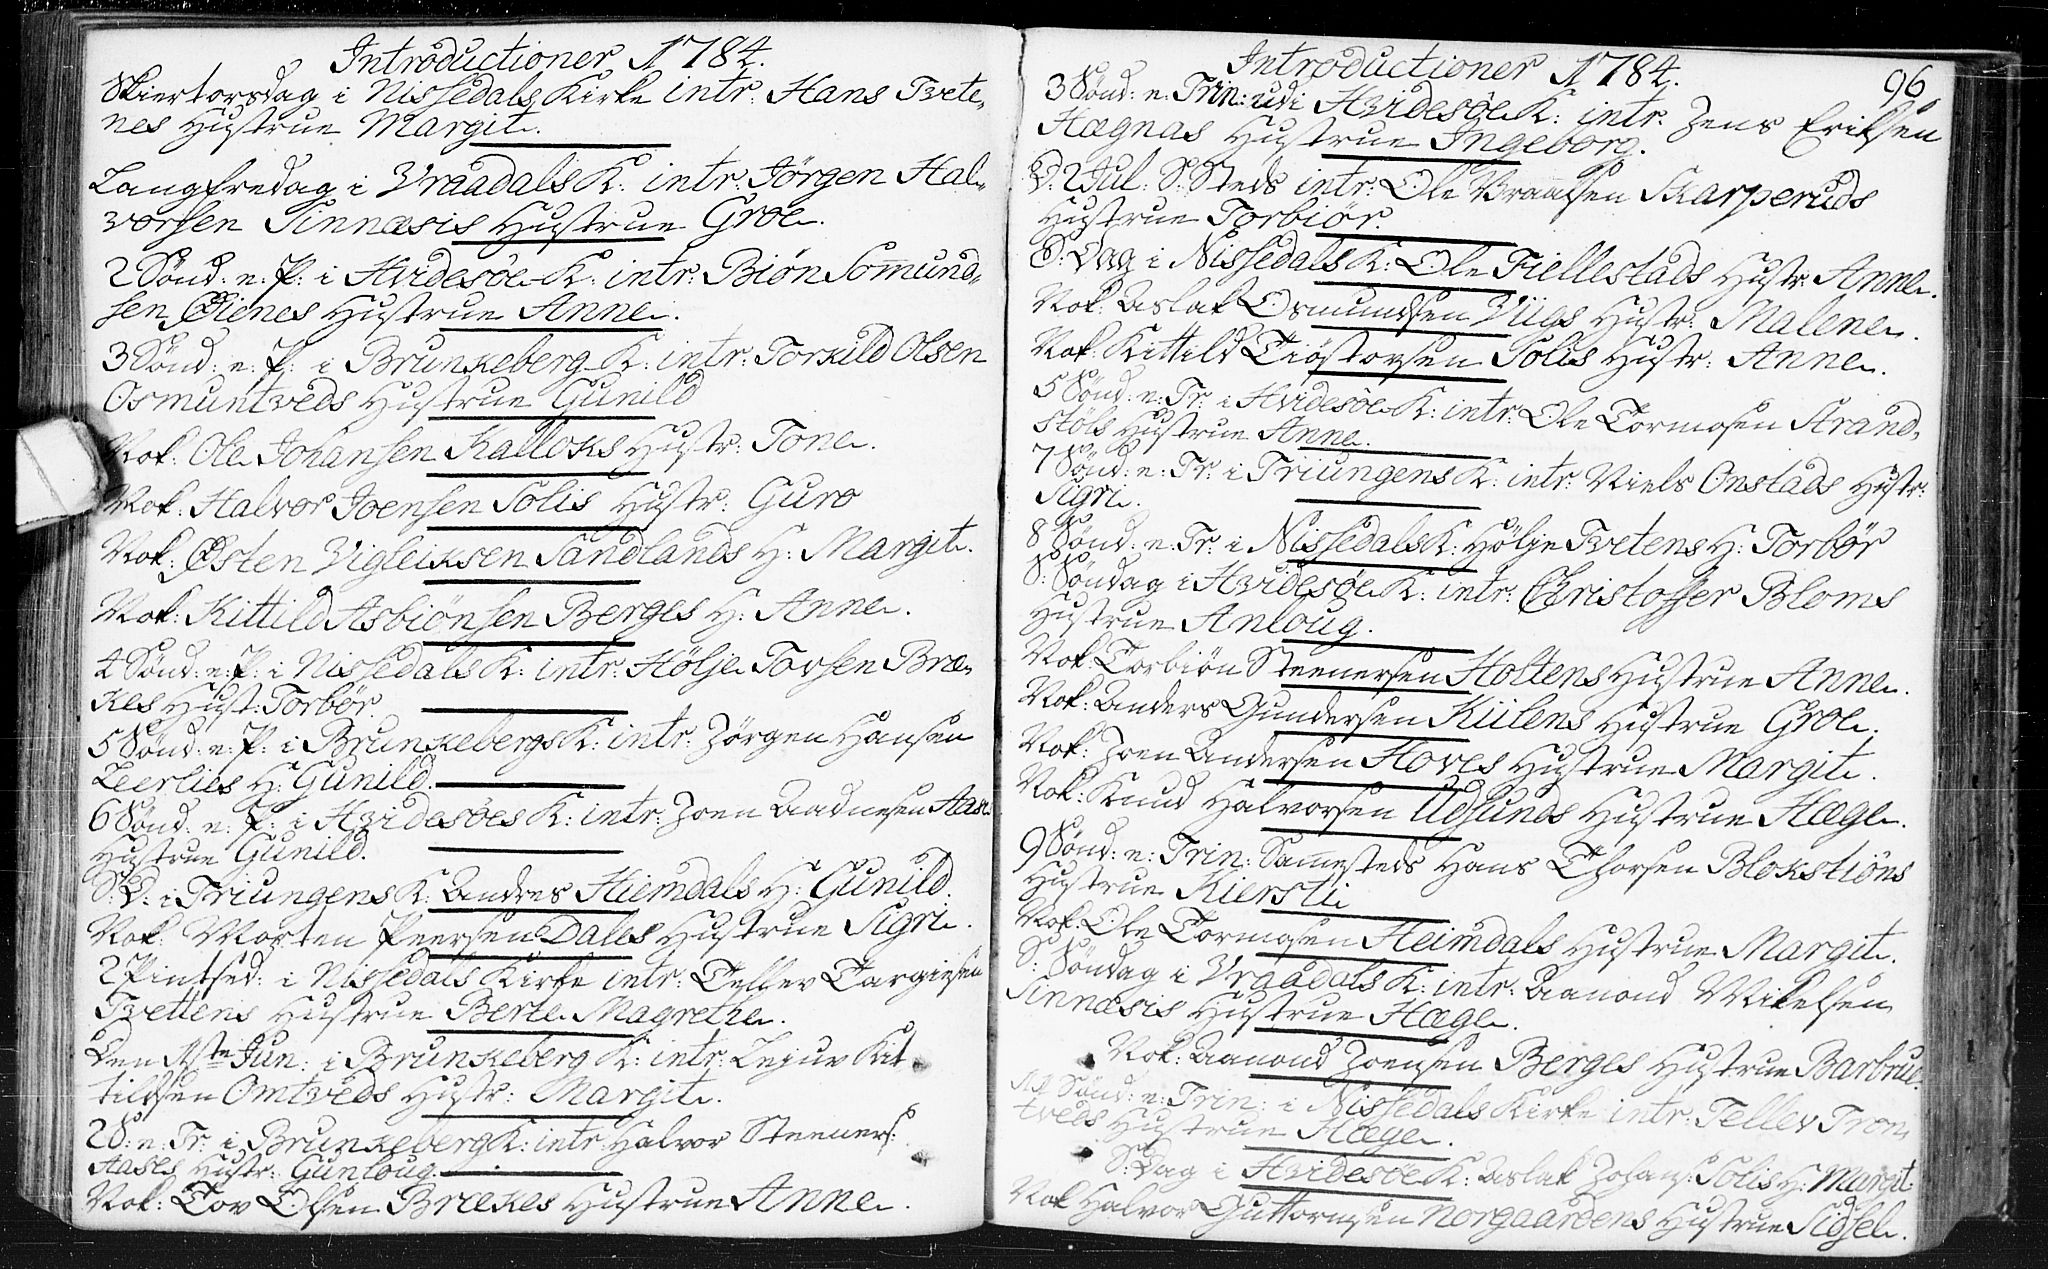 Introductioner 1784.
Skiertorsdag i Nissedals Kirke intr: Hans Tvete-
nes Hustrue Margit.
Langfredag i Vraadals K: intr: Jörgen Hal-
vorsen Sinnæsis Hustrue Groe.
2 Sönd: e: P: i Hvidesöe K: intr: Biön Somund-
sen Öienes Hustrue Anne.
3 Sönd: e: P: i Brunkeberg K: intr: Torkild Olsen
Osmuntveds Hustrue Gunild
Nok: Ole Johansen Kalloks Hustr: Tone.
Nok: Halvor Joensen Solis Hustr: Guro
Nok: Østen Vigleiksen Sandlands H: Margit.
Nok: Kittild Asbiönsen Berges H: Anne.
4 Sönd: e: P: i Nissedals K: intr: Hölje Tovsen Bræ-
kes Hust: Torbör.
5 Sönd: e: P: i Brunkebergs K: intr: Jörgen Hansen
Leerlies H: Gunild.
6 Sönd: e: P: i Hvidesöes K: intr: Joen Aadnesen
Hustrue Gunild.
S: D: i Triungens K: Andres Hiemdals H: Gunild.
Nok: Morten Peersen Dales Hustrue Sigri.
2 Pintsed: i Nissedals Kirke intr: Tellev Targiesen
Tvettens Hustrue Berte Magrethe.
Den 1ste Jun: i Brunkeberg K: intr: Lejuv Kit
tildsen Omtveds Hustr: Margit.
2 S: e: Tr: i Brunkeberg K: intr: Halvor Steeners:
Aases Hustr: Gunloug.
Nok: Tov Olsen Brækes Hustrue Anne.
Introductioner 1784.
96
3 Sönd: e: Trin: udi Hvidesöe K: intr: Jens Eriksen
Hægnas Hustrue Ingeborg.
D: 2 Jul: S: Steds intr: Ole Braatsen Skarperuds
Hustrue Torbiör.
S: Dag i Nissedals K: Ole Fiellestads Hustr: Anne.
Nok: Aslak Osmundsen Viigs Hustr: Malene.
Nok: Kittild Tiöstovsen Solis Hustr: Anne.
5 Sönd: e: Tr: i Hvidesöe K: intr: Ole Tormosen Strand-
stöls Hustrue Anne.
7 Sönd: e: Tr: i Triungens K: intr: Niels Onstads Hustr:
Sigri.
8 Sönd: e: Tr: i Nissedals K: Hölje Tvetens H: Torbör
S: Söndag i Hvidesöe K: intr: Christoffer Bloms
Hustrue Anloug.
Nok: Torbiön Steenersen Holtens Hustrue Anne.
Nok: Anders Gundersen Kiilens Hustrue Groe.
Nok: Joen Andersen Hoves Hustrue Margit.
Nok: Knud Halvorsen Udsunds Hustrue Hæge.
9 Sönd: e: Trin: Sammesteds Hans Thorsen Blokstiöns
Hustrue Kiersti
Nok: Ole Tormosen Heimdals Hustrue Margit.
S: Söndag i Vraadals K: intr: Aanond Mikelsen
Sinnæsis Hustrue Hæge.
Nok: Aanond Joensen Berges Hustrue Barbrue.
11 Sönd: e: Trin: i Nissedals Kirke intr: Tellev Tron-
tveds Hustrue Hæge.
S: Dag i Hvidesöe K: Aslak Johans: Solis H: Margit
Nok Halvor Guttormsen Norgaardens Hustrue Sidsel.